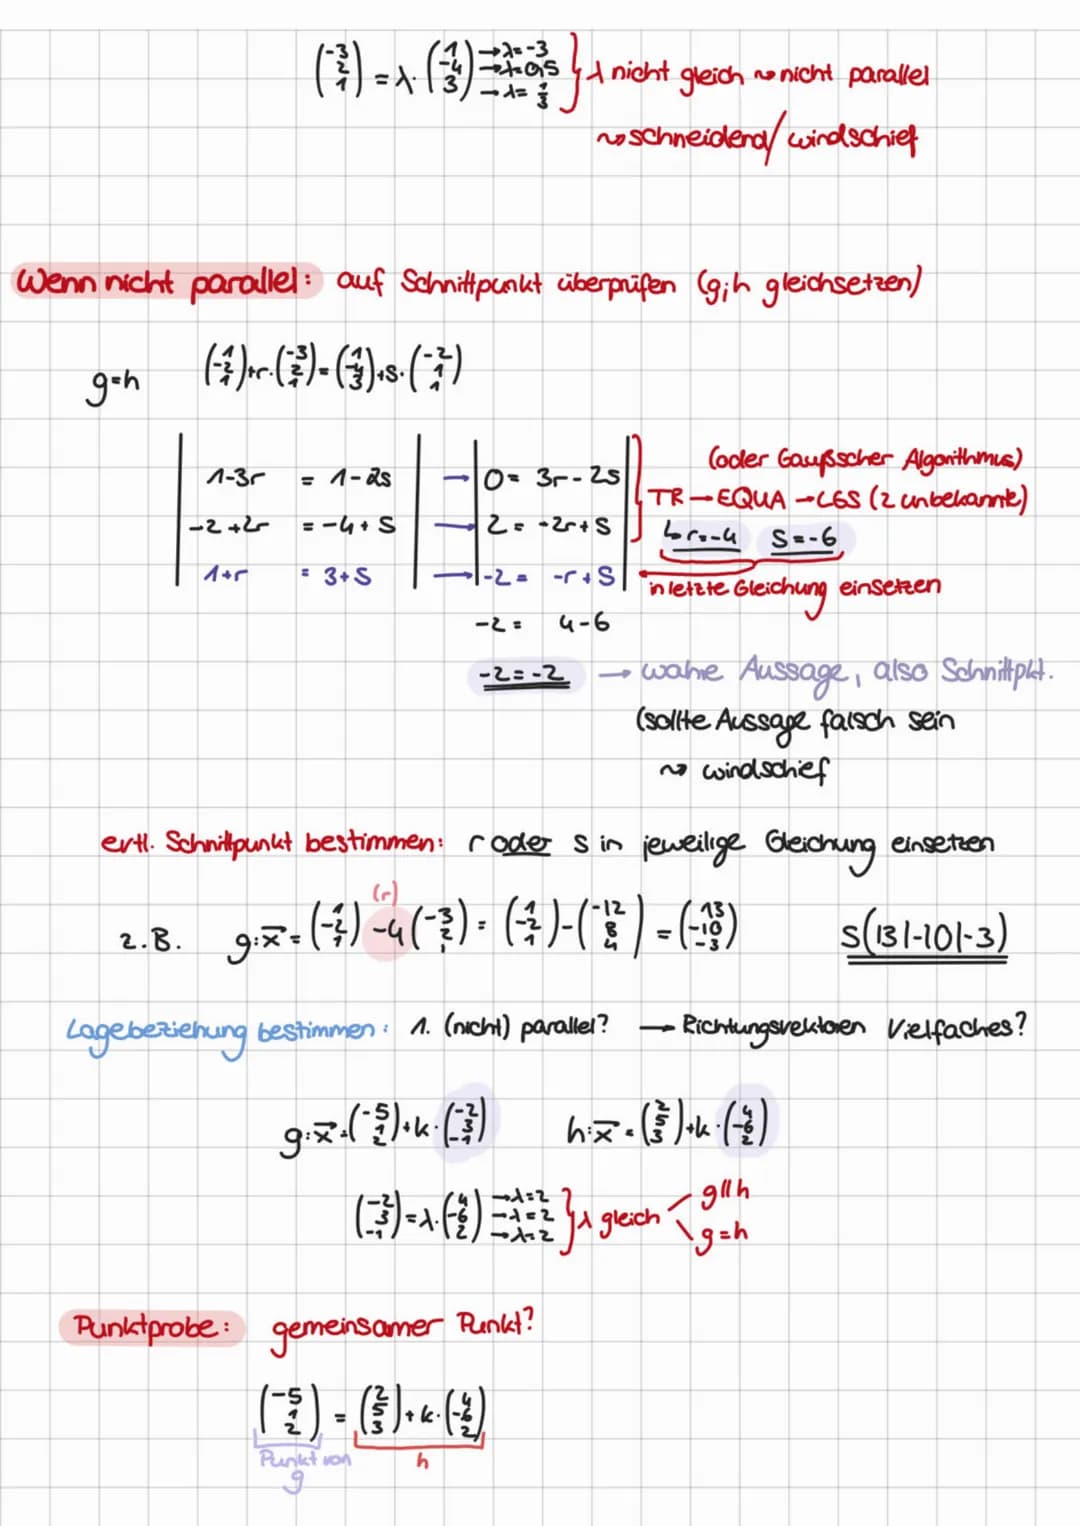 (-3 2 1) = λ · (1 -4 3) → λ = -3 → λ = 0,5 → λ = 1/3 } λ nicht gleich ⇝ nicht parallel
⇝ schneidend / windschief
Wenn nicht parallel: auf Schnittpunkt überprüfen (g;h gleichsetzen)
g=h (1 -2 1) + r · (-3 2 1) = (1 -4 3) + s · (-2 1 1)
(oder Gaußscher Algorithmus)
1-3r = 1-2s → 0 = 3r - 2s
TR → EQUA → LGS (2 unbekannte)
-2+2r = -4+s → 2 = -2r+s
↳ r=-4 s=-6
1+r = 3+s → -2 = -r+s
in letzte Gleichung einsetzen
-2 = 4-6
-2=-2 → wahre Aussage, also Schnittpkt.
(sollte Aussage falsch sein
⇝ windschief
evtl. Schnittpunkt bestimmen: r oder s in jeweilige Gleichung einsetzen
(r)
z.B. g:x⃗ = (1 -2 1) -4 (-3 2 1) = (1 -2 1) - (-12 8 4) = (13 -10 -3) S(13|-10|-3)
Lagebeziehung bestimmen: 1. (nicht) parallel? → Richtungsvektoren Vielfaches?
g:x⃗ = (-5 1 2) + k · (-2 3 -1) h:x⃗ = (2 5 3) + k · (4 -6 2)
(-2 3 -1) = λ · (4 -6 2) → λ=2 → λ=2 → λ=2 } λ gleich g∥h g=h
Punktprobe: gemeinsamer Punkt?
(-5 1 2) = (2 5 3) + k · (4 -6 2)
Punkt von g h